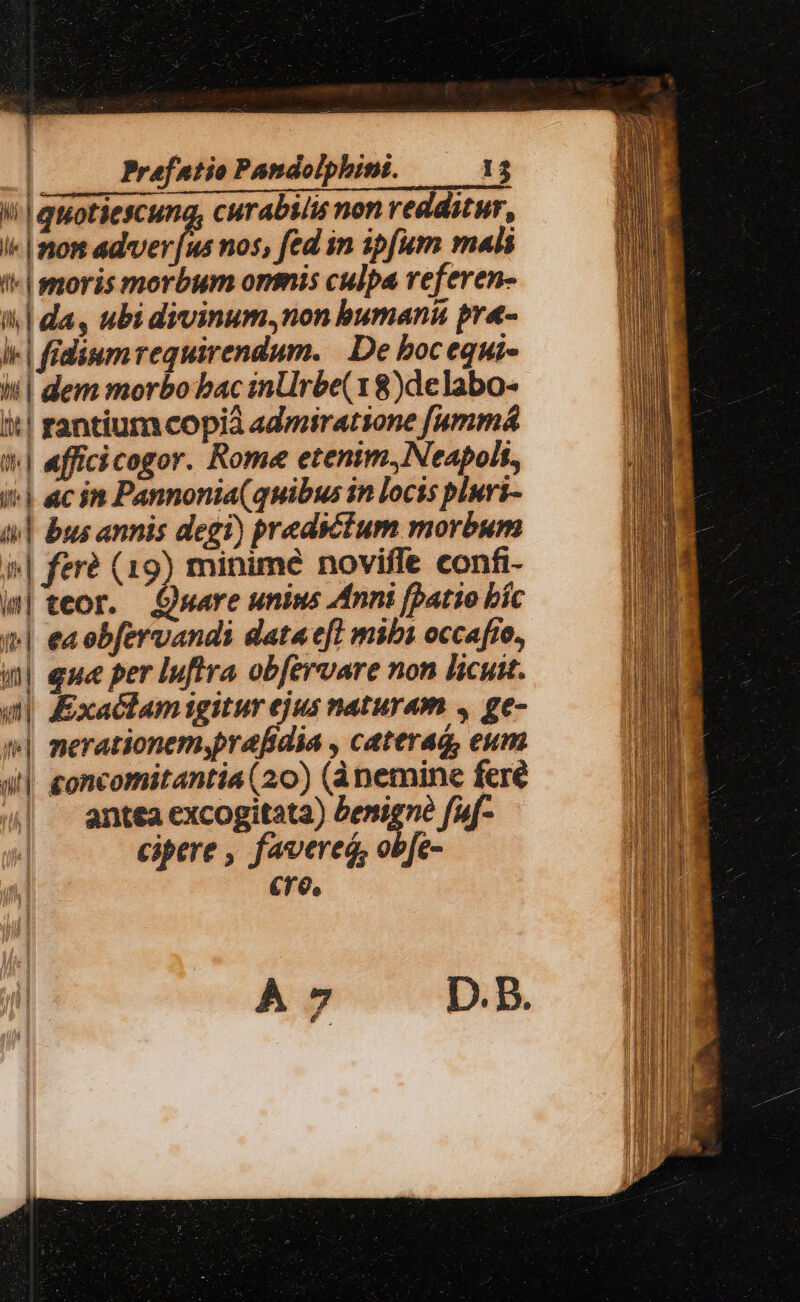 Præfatio Pandolphini. 13
quotiescunq; curabilis non redditur,
non adverſus nos, ſed in ipſum mali
moris morbum omnis culpa referen-
da, ubi divinum, non humanũ præ-
ſidium requirendum. De hoc equi-
dem morbo hac in Urbe(18)de labo-
rantium copiâ admiratione ſummâ
affici cogor. Romæ etenim, Neapoli,
ac in Pannonia(quibus in locis pluri-
bus annis degi) prædictum morbum
ferè (19) minimè noviſſe confi-
teor. Quare unius Anni ſpatio hîc
ea obſervandi data eſt mihi occaſio,
quæ per luſtra obſervare non licuit.
Exactam igitur ejus naturam , ge-
nerationem,præſidia , cæteraq; eum
concomitantia(20) (à nemine ferè
antea excogitata) benignè ſuſ-
cipere , favereq; obſe-
cro.
A 7 D.B.